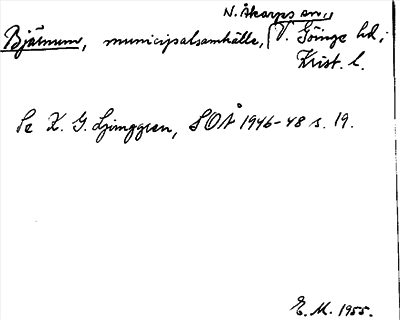 N. Åkarps sn.,
Bjärnum, municipalsamhälle, V. Göinge hd;
Krist. l.
Se K. G. Ljunggren, SOÅ 1946-48 s. 19.
E. M. 1955.